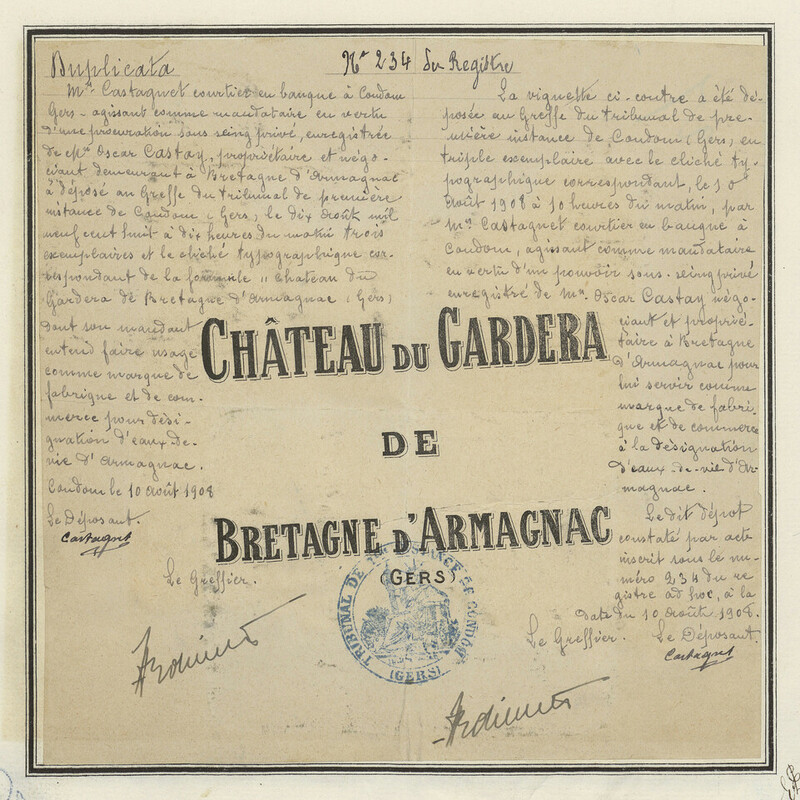 Duplicata
Nº 234 du Registre
Mr Castagnet courtier en banque à Condom
Gers - agissant comme mandataire en vertu
d'une procuration sous seing privé, enregistrée
de Mr Oscar Castay, propriétaire et négo-
ciant demeurant à Bretagne d'Armagnac
a déposé au Greffe du tribunal de première
instance de Condom (Gers), le dix Août mil
neuf cent huit à dix heures du matin trois
exemplaires et le cliché typographique cor-
respondant de la formule " Chateau du
Gardera de Bretagne d'Armagnac (Gers)
dont son mandant
entend faire usage
comme marque de
fabrique et de com-
merce pour dési-
gnation d'eaux-de-
vie d'Armagnac.
Condom le 10 Août 1908
Le Déposant.
Castagnet
Le Greffier.
La vignette ci-contre a été dé-
posée au Greffe du tribunal de pre-
mière instance de Condom (Gers) en
triple exemplaire avec le cliché ty-
pographique correspondant, le 10
Août 1908 à 10 heures du matin, par
Mr Castagnet courtier en banque à
Condom, agissant comme mandataire
en vertu d'un pouvoir sous-seing privé
enregistré de Mr. Oscar Castay négo-
ciant et proprié-
taire à Bretagne
d'Armagnac pour
lui servir comme
marque de fabri-
que et de commerce
à la désignation
d'eaux-de-vie d'Ar-
magnac.
Le dit dépôt
constaté par acte
inscrit sous le nu-
méro 234 du re-
gistre ad hoc, à la
date du 10 Août 1908.
Le Greffier. Le Déposant.
Castagnet
CHÂTEAU DU GARDERA
DE
BRETAGNE D'ARMAGNAC
(GERS)
TRIBUNAL DE 1re INSTANCE DE CONDOM
(GERS)